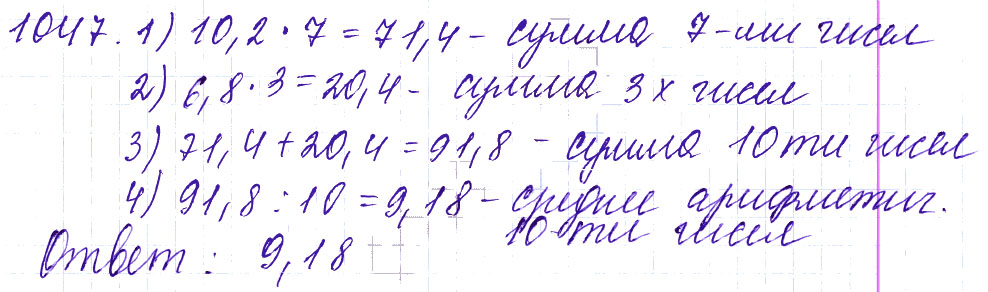 1047. 1) 10,2 · 7 = 71,4 - сумма 7-ми чисел
2) 6,8 · 3 = 20,4 - сумма 3х чисел
3) 71,4 + 20,4 = 91,8 - сумма 10ти чисел
4) 91,8 : 10 = 9,18 - среднее арифметич.
10-ти чисел
Ответ: 9,18